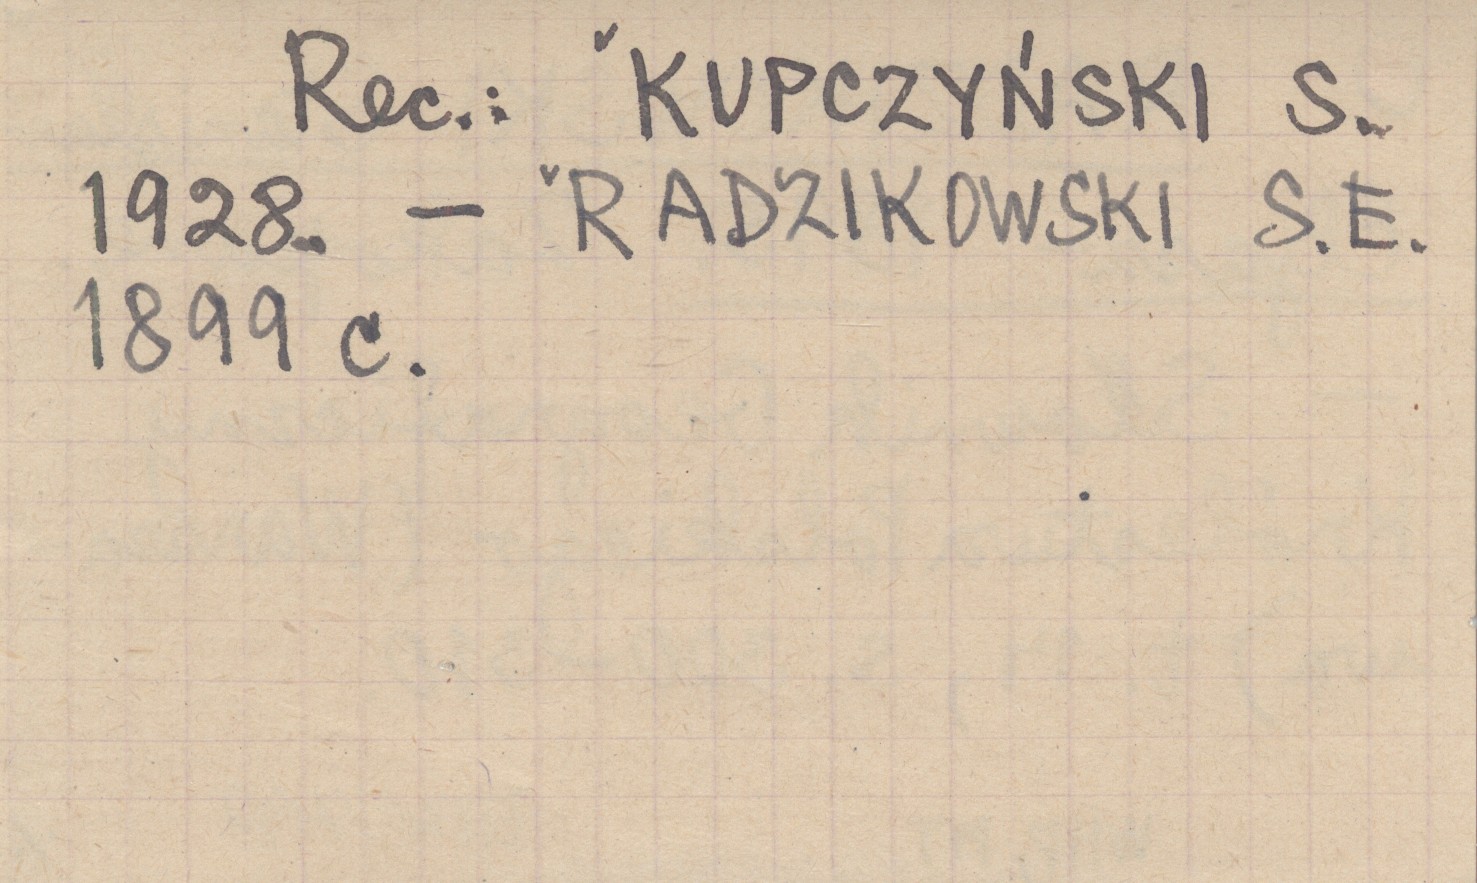 Rec.: ˇKUPCZYŃSKI S.
1928. — ˇRADZIKOWSKI S.E.
1899 c.